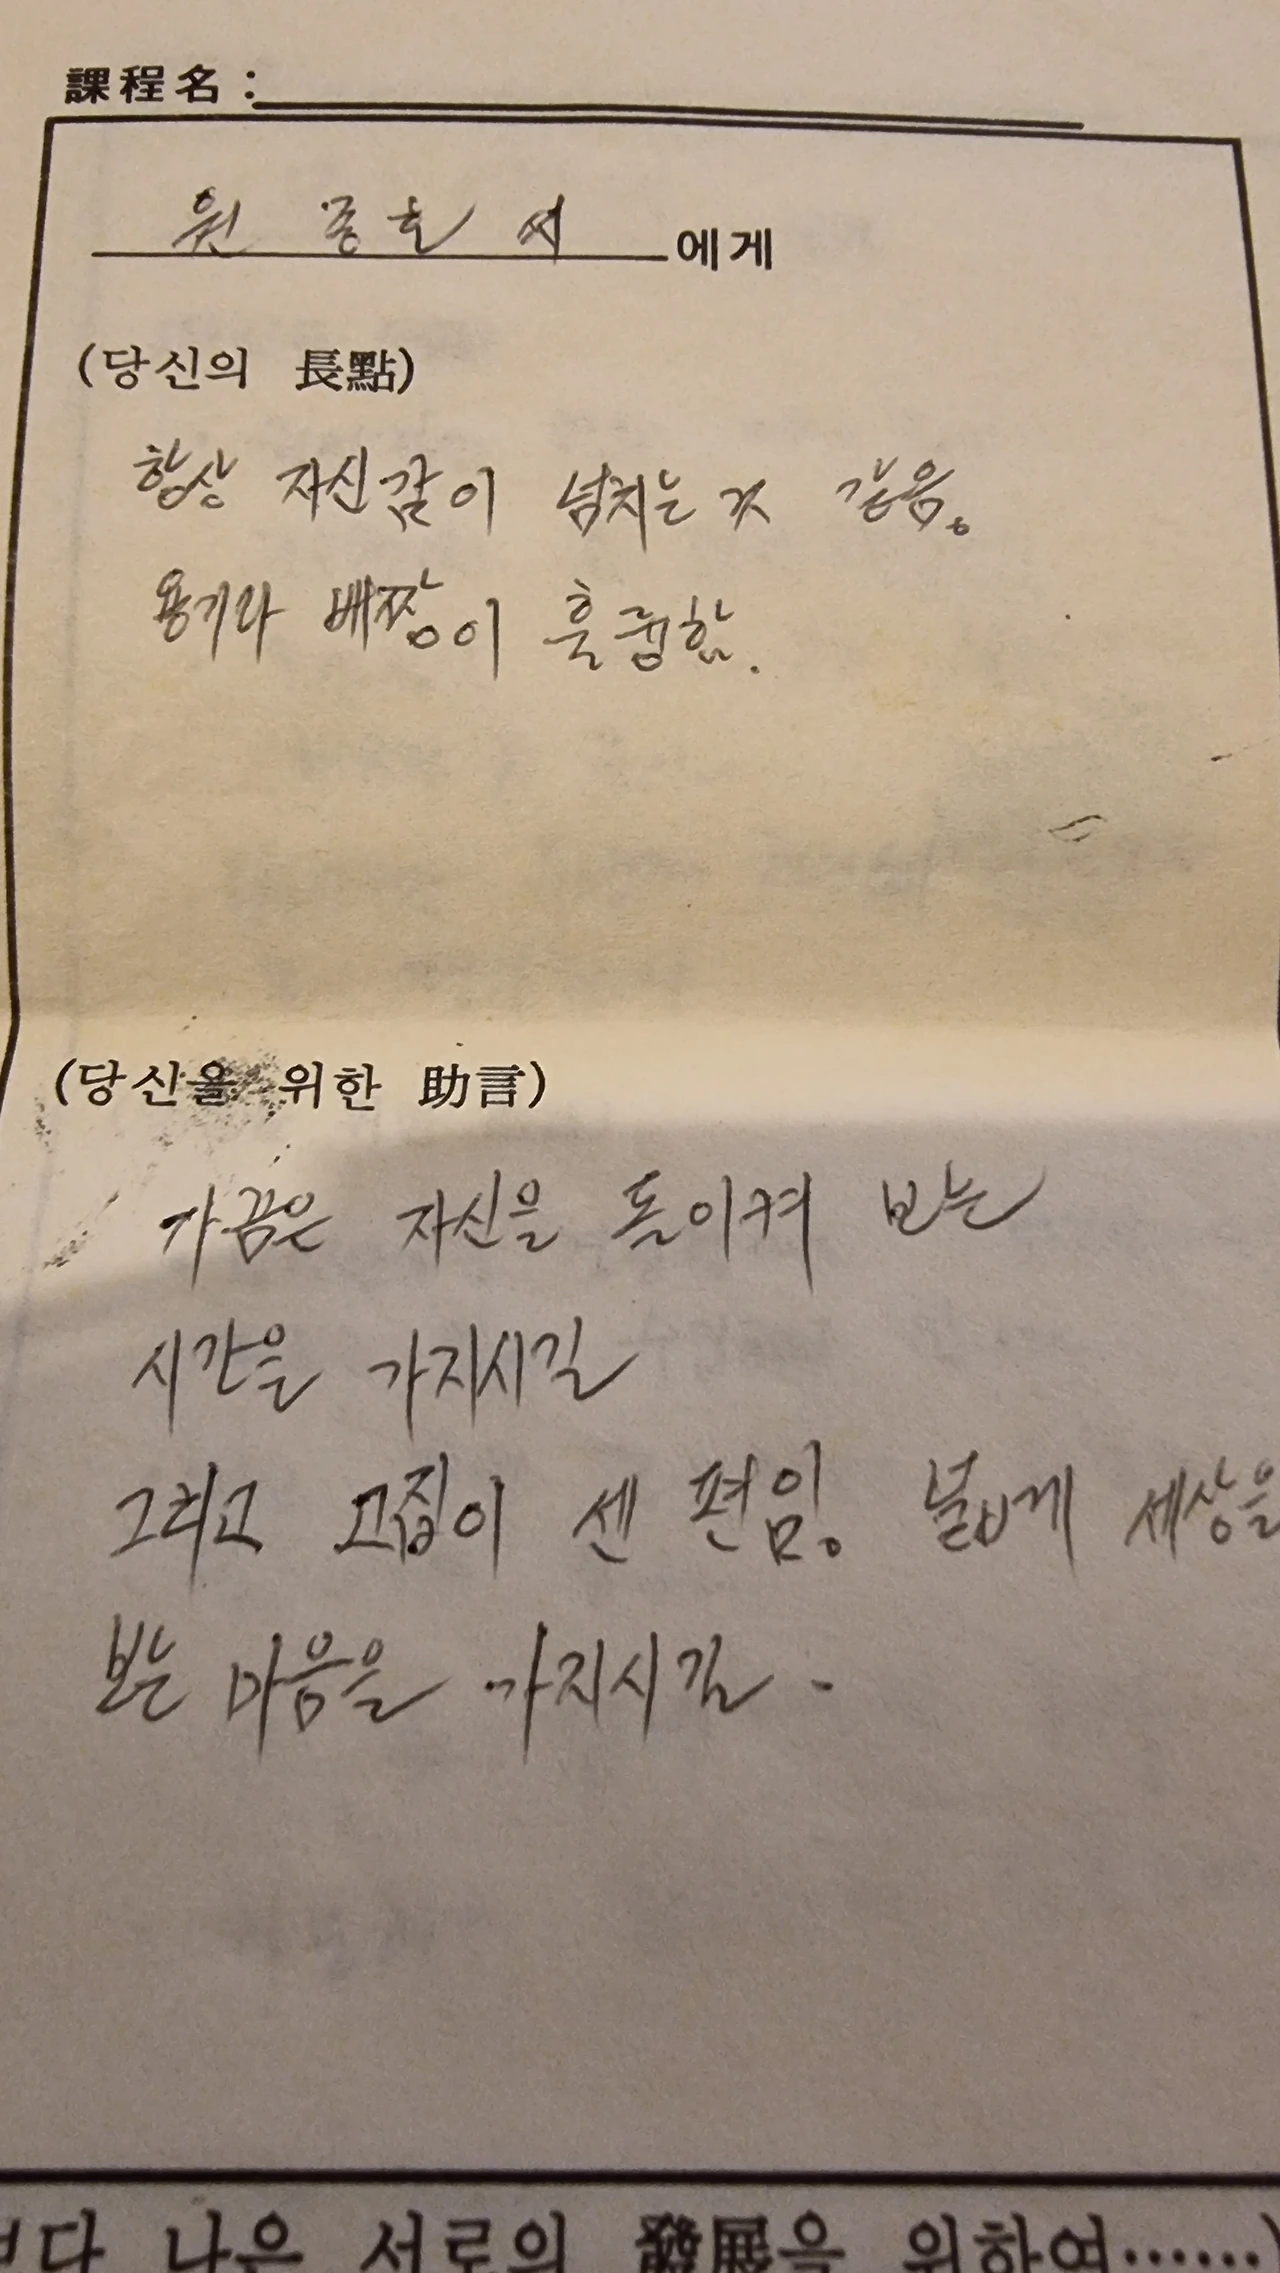 課程名:
원 종호 씨 에게
(당신의 長點)
항상 자신감이 넘치는 것 같음.
용기와 배짱이 훌륭함.
(당신을 위한 助言)
가끔은 자신을 돌이켜 보는
시간을 가지시길
그리고 고집이 센 편임. 넓게 세상을
보는 마음을 가지시길.
보다 나은 서로의 發展을 위하여……)